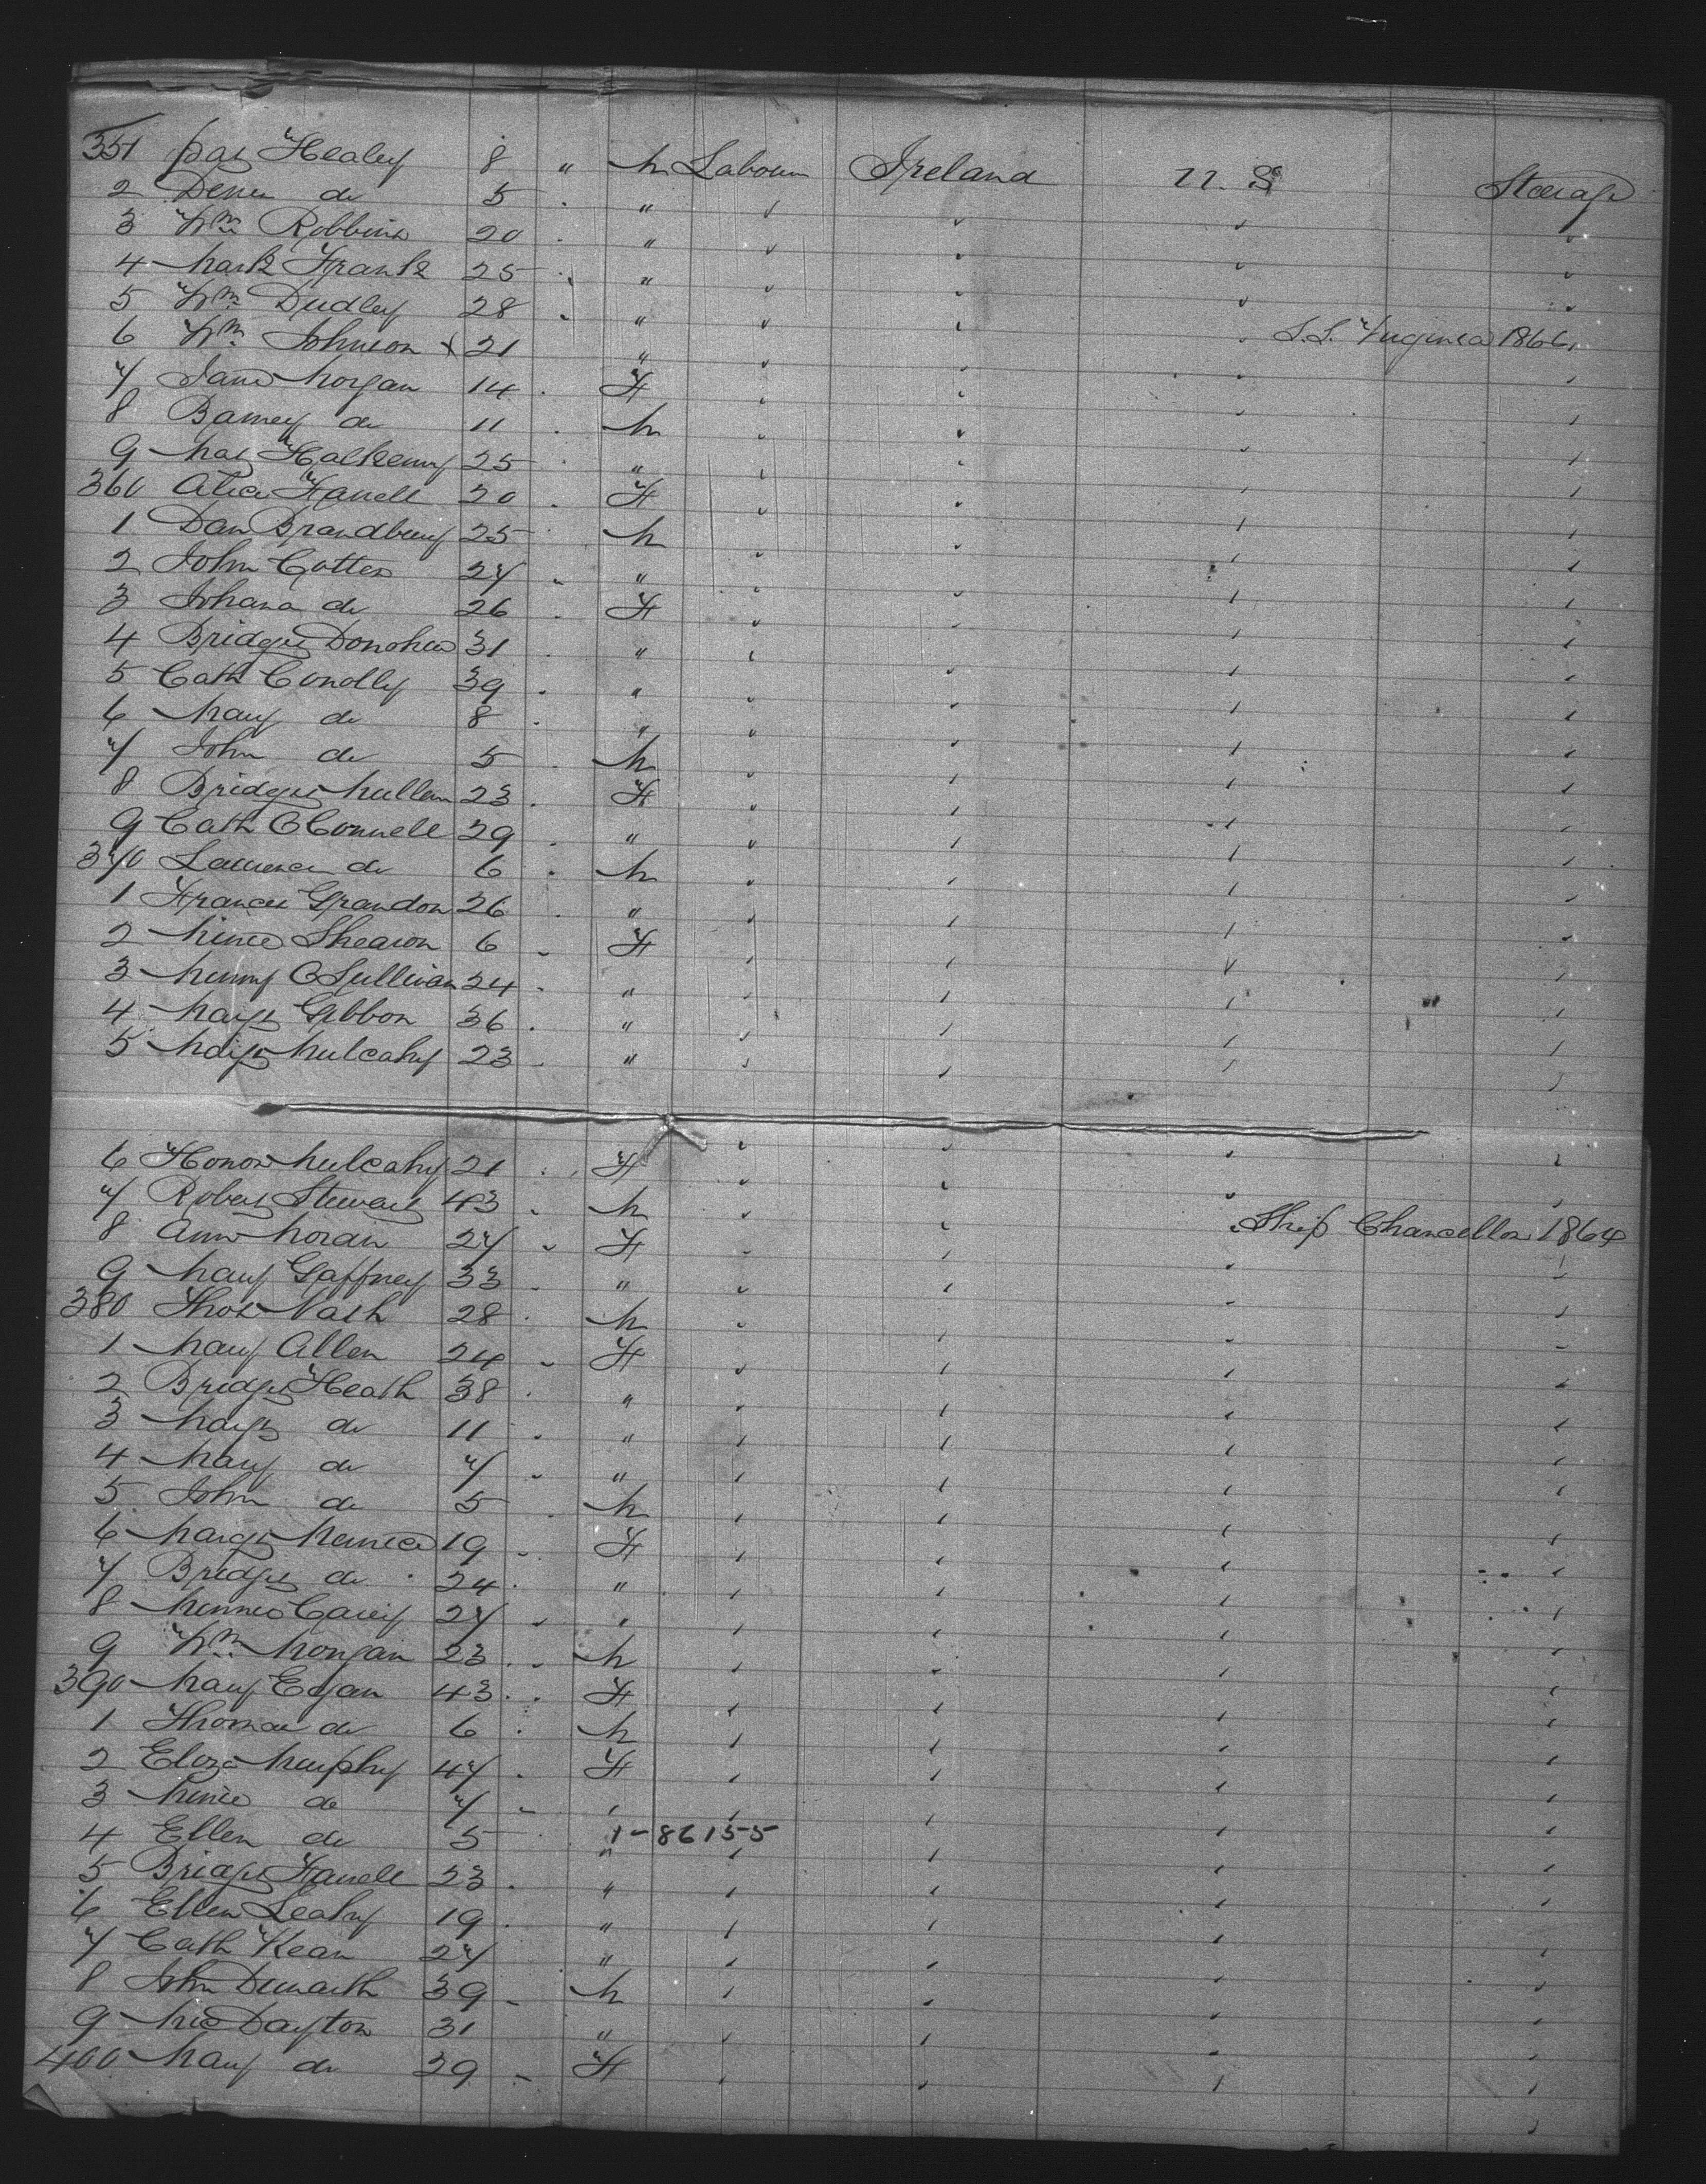 351 Pat Healey 8 " M Labour Ireland U.S. Steerage
2 Denis do 5 "
3 Wm Robbins 20 "
4 Mark Frank 25 "
5 Wm Dudley 28 "
6 Wm Johnson X 21 " S.S. Virginia 1866
7 Jane Morgan 14 F
8 Barney do 11 M
9 25 "
360 Alice Farrell 20 F
1 Dan 25 M
2 John Cotter 27 "
3 Johana do 26 F
4 Bridget Donohue 31 "
5 Cath Conolly 39 "
6 Mary do 8 "
7 John do 5 M
8 Bridget Mullen 23 F
9 Cath OConnell 29 "
370 Laurence do 6 M
1 Frances Grandon 26 "
2 Minie Shearon 6 F
3 OSullivan 24 "
4 Margt Gibbon 36 "
5 Margt Mulcahy 23 "
6 Honor Mulcahy 21 F
7 Robert Stewart 43 M
8 Ann Moran 27 F Ship Chancellor 1864
9 Mary Gaffney 33 "
380 Thos Nash 28 M
1 Mary Allen 24 F
2 Bridget Heath 38 "
3 Margt do 11 "
4 Mary do 7 "
5 John do 5 M
6 Margt 19 F
7 Bridget do 24 "
8 Minnie 27 "
9 Wm Morgan 23 M
390 Mary Egan 43 F
1 Thomas do 6 M
2 Eliza Murphy 47 F
3 Minie do 7 "
4 Ellen do 5 " 1-86155
5 Bridget Farrell 23 "
6 Ellen Leahy 19 "
7 Cath Kean 27 "
8 John 39 M
9 Dayton 31 "
400 Mary do 29 F